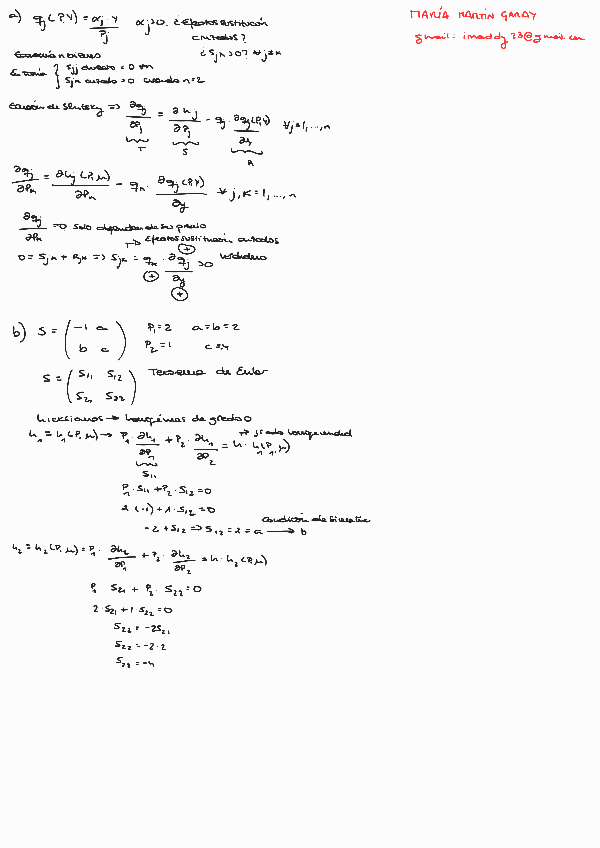 MARÍA MARTÍN GARAY
a) qj (P,Y) = αj · Y / Pj αj > 0. ¿Efectos sustitución
cruzados?
¿ Sjk > 0? ∀ j≠k
En teoría { Sjj directo = 0
Sjk cruzado = 0 cuando n=2
Ecuación de Slutsky => ∂qj/∂Pj = ∂hj/∂Pj - qj · ∂qj(P,Y)/∂y ∀j=1,...,n
T S R
∂qj/∂Pk = ∂hj (P,μ)/∂Pk - qk · ∂qj (P,Y)/∂y ∀ j,k = 1,...,n
∂qj/∂Pk = 0 solo dependen de su precio
→ Efectos sustitución cruzados
0 = Sjk + Rjk => Sjk = qk · ∂qj/∂y > 0 Verdadero
+ + +
b) S = ( -1 a b c ) P1 = 2 a = b = 2
P2 = 1
S = ( S11 S12 S21 S22 ) Teorema de Euler
hicksianos → homogéneas de grado 0
h1 = h1(P,μ) → P1 · ∂h1/∂P1 + P2 · ∂h1/∂P2 = h · h1(P,μ) → grado homogeneidad
S11
P1 · S11 + P2 · S12 = 0
2 (-1) + 1 · S12 = 0
-2 + S12 => S12 = 2 = a → b condición de simetría
h2 = h2 (P,μ) = P1 · ∂h2/∂P1 + P2 · ∂h2/∂P2 = h · h2 (P,μ)
P1 S21 + P2 · S22 = 0
2 · S21 + 1 · S22 = 0
S22 = -2S21
S22 = -2 · 2
S22 = -4